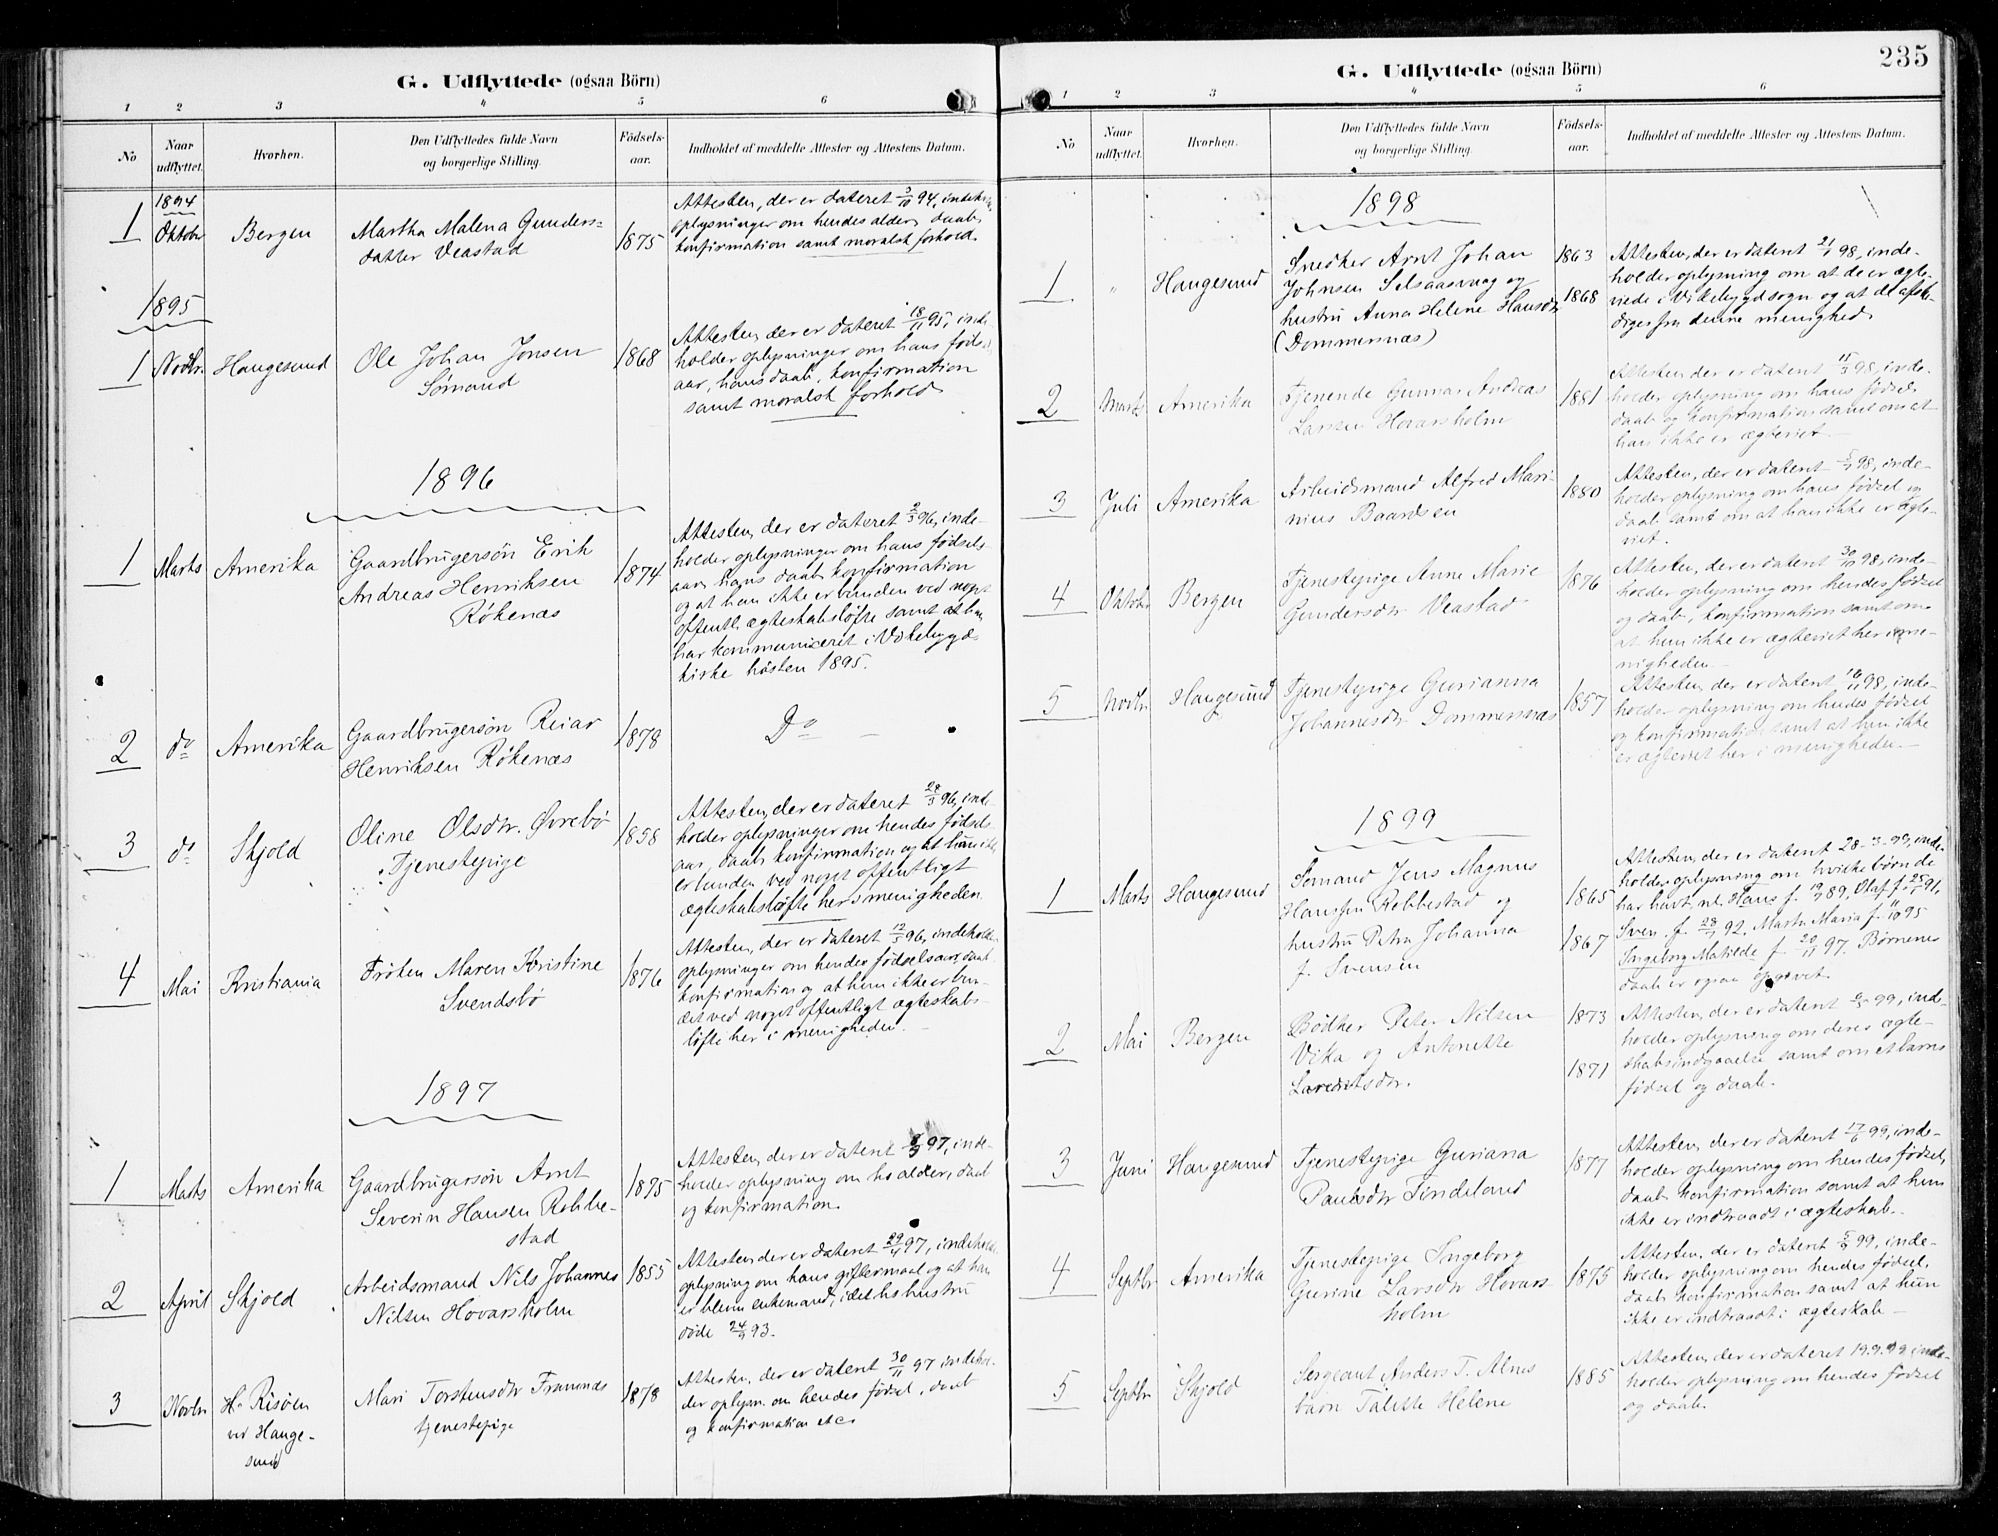 G. Udflyttede (ogsaa Börn)
1 2 3 4 5 6
No
Naar udflyttet.
Hvorhen.
Den Udflyttedes fulde Navn og borgerlige Stilling.
Födsels-aar.
Indholdet af meddelte Attester og Attestens Datum.
1894
1 Oktobr Bergen
Martha Malena Gunders-
datter Veastad
1875
Attesten, der er dateret 3/10 94, indeh.
oplysninger om hendes alder, daab,
konfirmation samt moralsk forhold.
1895
1 Novbr. Haugesund
Ole Johan Jonsen
Sømand
1868
Attesten, der er dateret 18/11 95, inde-
holder oplysninger om hans føds.
aar, hans daab, konfirmation
samt moralsk forhold
1896
1 Marts Amerika
Gaardbrugersøn Erik
Andreas Henriksen
Røkenæs
1874
Attesten, der er dateret 2/3 96, inde-
holder oplysninger om hans fødsels
aar, hans daab, konfirmation
og at han ikke er bunden ved noget
offentl. ægteskabsløfte samt at han
har kommuniceret i Vikebygd
kirke høsten 1895.
2 do Amerika
Gaardbrugersøn Reiar
Henriksen Røkenæs
1878
Do –
3 do Skjold
Oline Olsdtr. Øvrebø
Tjenestepige
1858
Attesten, der er dateret 28/3 96, inde-
holder oplysninger om hendes fødsels
aar, daab, konfirmation og at hun ikke
er bunden ved noget offentligt
ægteskabsløfte her i menigheden
4 Mai Kristiania
Frøken Maren Kristine
Svendsbø
1876
Attesten, der er dateret 12/5 96, indeholder
oplysninger om hendes fødselsaar, daab
konfirmation og at hun ikke er bun-
det ved noget offentligt ægteskabs-
løfte her i menigheden. –
1897
1 Marts Amerika
Gaardbrugersøn Arnt
Severin Hansen Robbe-
stad
1875
Attesten, der er dateret 8/3 97, inde-
holder oplysning om hs alder, daab
og konfirmation.
2 April Skjold
Arbeidsmand Nils Johannes
Nilsen Hovarsholm
1855
Attesten, der er dateret 29/4 97, indehold.
oplysning om hans giftermaal og at han
er bleven enkemand, idet hs hustru
døde 24/9 93.
3 Novbr H. Risøen
ved Hauge-
sund
Mari Torstensdtr Framnæs
tjenestepige
1878
Attesten, der er dateret 30/11 97 indehol-
der oplysn. om hendes fødsel, daab
og konfirmation etc.
235
G. Udflyttede (ogsaa Börn)
1 2 3 4 5 6
No
Naar udflyttet.
Hvorhen.
Den Udflyttedes fulde Navn og borgerlige Stilling.
Födsels-aar.
Indholdet af meddelte Attester og Attestens Datum.
1898
1 " Haugesund
Snedker Arnt Johan
Johnsen Selsaasvaag og
hustru Anna Helene Hansdtr
(Dommersnæs)
1863
1868
Attesten, der er dateret 21/1 98, inde-
holder oplysning om at de er ægte-
viede i Vikebygd sogn og at de afske-
diges fra denne menighed
2 Marts Amerika
Tjenende Gunnar Andreas
Larsen Hovarsholm
1881
Attesten, der er dateret 15/3 98, inde-
holder oplysning om hans fødsel,
daab og konfirmation samt om at
han ikke er ægteviet. –
3 Juli Amerika
Arbeidsmand Alfred Mari-
nius Baardsen
1880
Attesten, der er dateret 5/7 98, inde-
holder oplysning om hans fødsel og
daab samt om at han ikke er ægte-
viet.
4 Oktobr Bergen
Tjenestepige Anne Marie
Gundersdtr Veastad
1876
Attesten, der er dateret 30/10 98, inde-
holder oplysning om hendes fødsel
og daab, konfirmation samt om
at hun ikke er ægteviet her i me-
nigheden. –
5 Novbr Haugesund
Tjenestepige Gurianna
Johannesdtr Dommersnæs
1857
Attesten, der er dateret 16/11 98, inde-
holder oplysning om hendes fødsel
og konfirmation samt at hun ikke
er ægteviet her i menigheden. –
1899
1 Marts Haugesund
Sømand Jens Magnus
Hansen Robbestad og
hustru Petra Johanna
f. Svensen
1865
1867
Attesten, der er dateret 28-3-99, inde-
holder oplysning om hvilke børn de
har havt, nl. Hans f. 19/9 89, Olaf f. 25/1 91,
Sven f. 28/7 92, Marta Maria f. 11/10 95
Ingeborg Matilde f. 20/11 97. Børnenes
daab er ogsaa opgivet.
2 Mai Bergen
Bødker Peter Nilsen
Vika og Antonette
Lareditsdtr.
1873
1871
Attesten, der er dateret 6/5 99, inde-
holder oplysning om deres ægte-
skabsindgaaelse samt om et barns
fødsel og daab.
3 Juni Haugesund
Tjenestepige Guriana
Paulsdtr Tindeland
1877
Attesten, der er dateret 17/6 99, inde-
holder oplysning om hendes fødsel,
daab, konfirmation samt at hun
ikke er indtraadt i ægteskab. –
4 Septbr Amerika
Tjenestepige Ingeborg
Gurine Larsdtr Hovars
holm
1875
Attesten, der er dateret 5/9 99, inde-
holder oplysning om hendes fødsel,
daab, konfirmation samt at hun
ikke er indtraadt i ægteskab –
5 Septbr Skjold
Sergeant Anders T. Alnes
barn Talette Helene
1885
Attesten, der er dateret 19.9.99 inde-
holder oplysning om hendes fødsel
og daab.